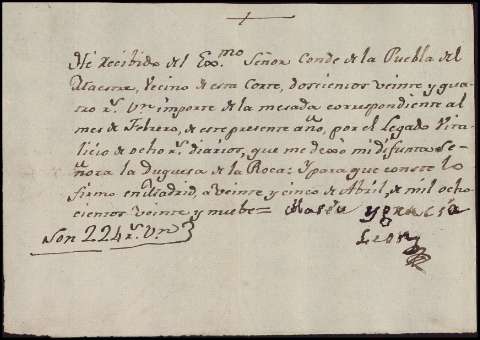 He recibido del Exmo Señor Conde de la Puebla del
Maestre, Vecino de esta Corte, doscientos veinte y qua-
tro rs. Vn importe de la mesada correspondiente al
mes de Febrero, de este presente año, por el Legado Vita-
licio de ocho rs. diarios, que me dexó mi difunta Se-
ñora la Duquesa de la Roca: Y para que conste lo
firmo en Madrid, a veinte y cinco de Abril, de mil ocho
cientos veinte y nuebe= Maria Ygnacia
Leon
Son 224 rs. Vn